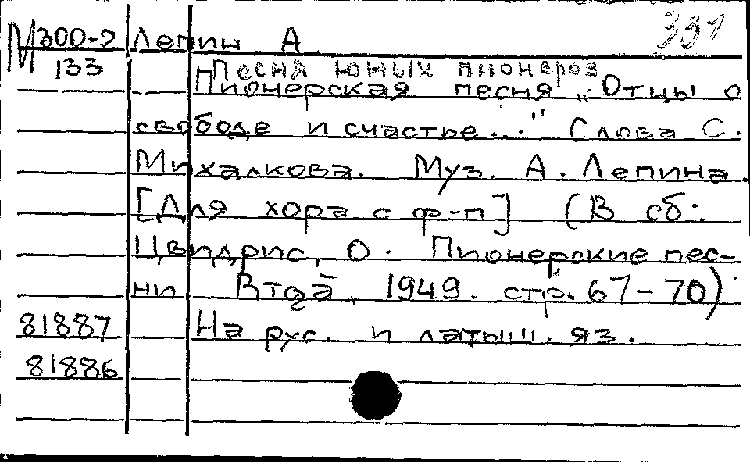 331
М 300-2 Лепин А.
133
Песня юных пионеров
Пионерская песня „Отцы о
свободе и счастье..." Слова С.
Михалкова. Муз. А. Лепина.
[Для хора с ф-п] (В сб:
Цвидрис, О. Пионерские пес-
ни 1949. стр. 67-70)
81887 На рус. и латыш. яз.
81886